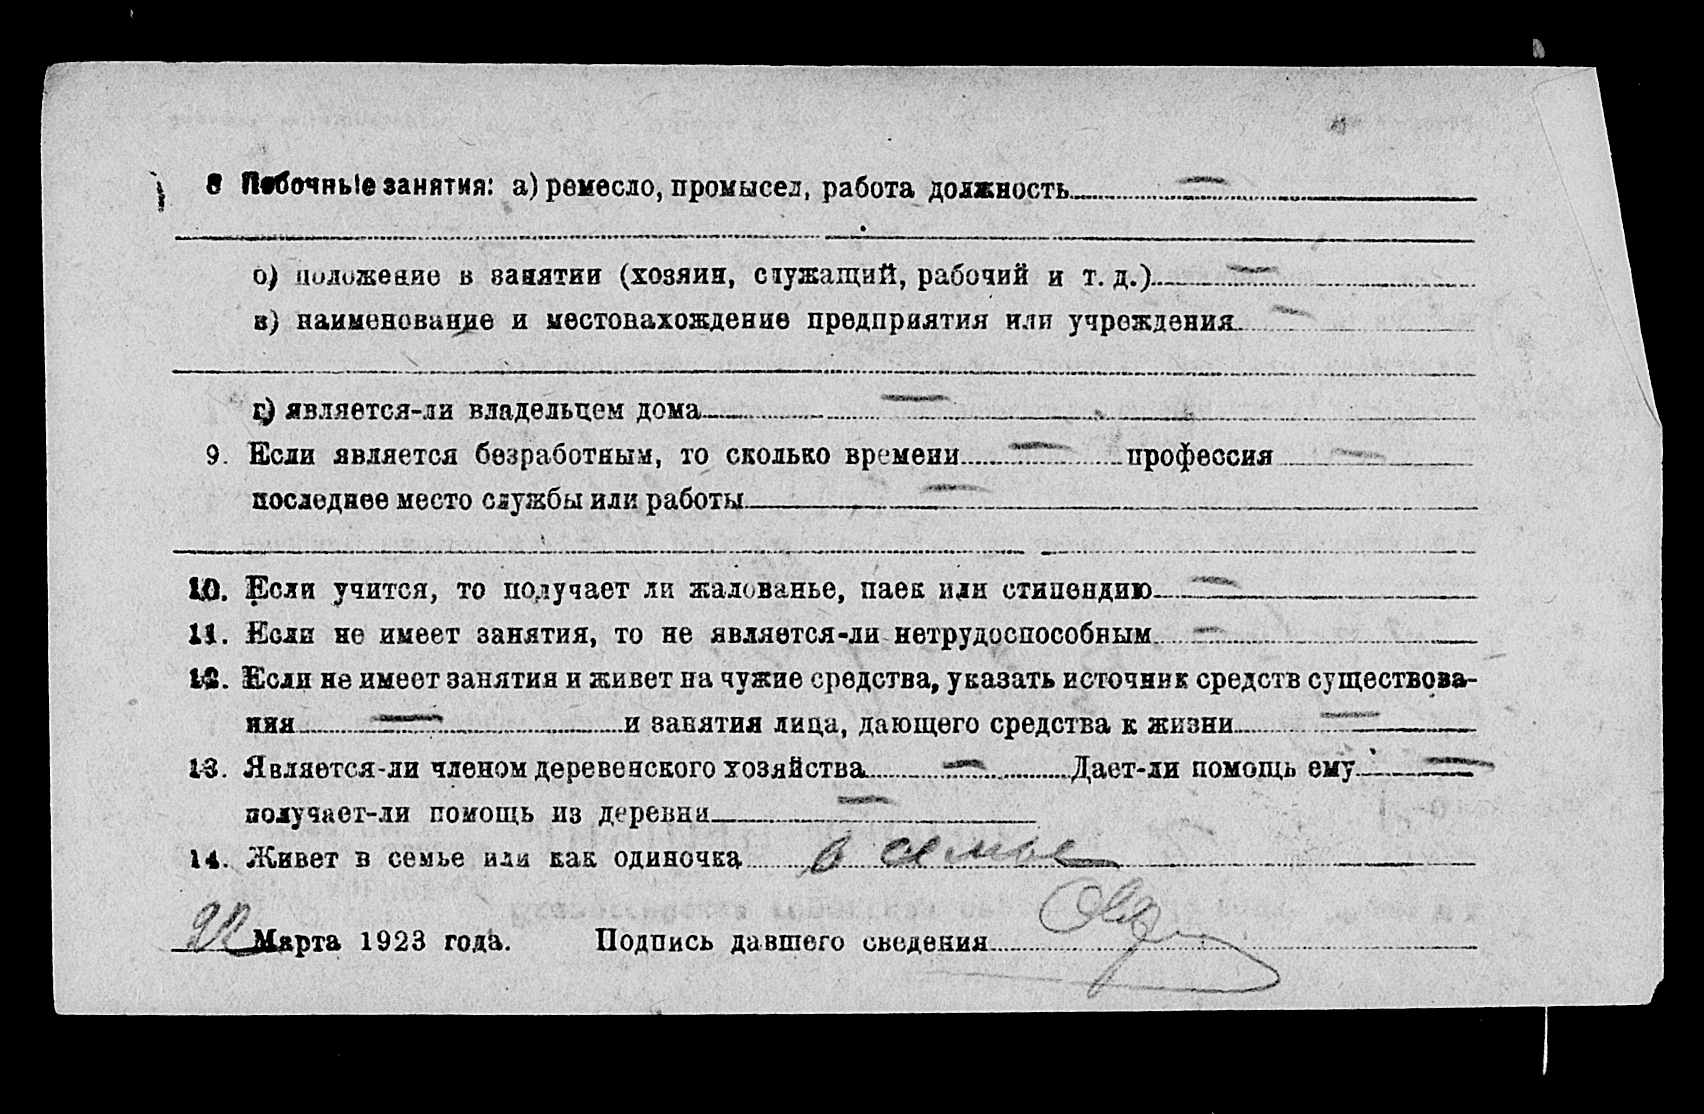 8 Побочные занятия: а) ремесло, промысел, работа должность —
б) положение в занятии (хозяин, служащий, рабочий и т. д.) —
в) наименование и местонахождение предприятия или учреждения —
г) является-ли владельцем дома —
9. Если является безработным, то сколько времени — профессия —
последнее место службы или работы —
10. Если учится, то получает ли жалованье, паек или стипендию —
11. Если не имеет занятия, то не является-ли нетрудоспособным —
12. Если не имеет занятия и живет на чужие средства, указать источник средств существова-
ния — и занятия лица, дающего средства к жизни —
13. Является-ли членом деревенского хозяйства — Дает-ли помощь ему —
получает-ли помощь из деревни —
14. Живет в семье или как одиночка в семье
Марта 1923 года. Подпись давшего сведения